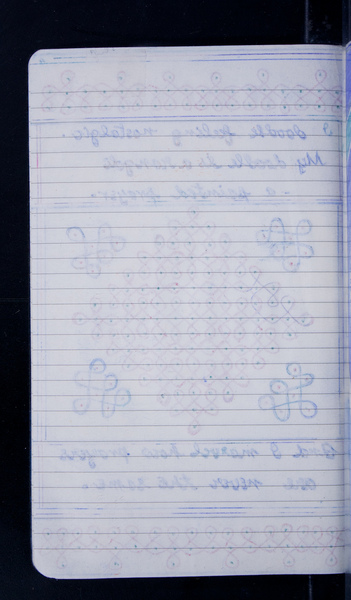 I doodle feeling nostalgia.
My doodle is a rangoli
- a prayer.
And I marvel how prayers
are never the same.